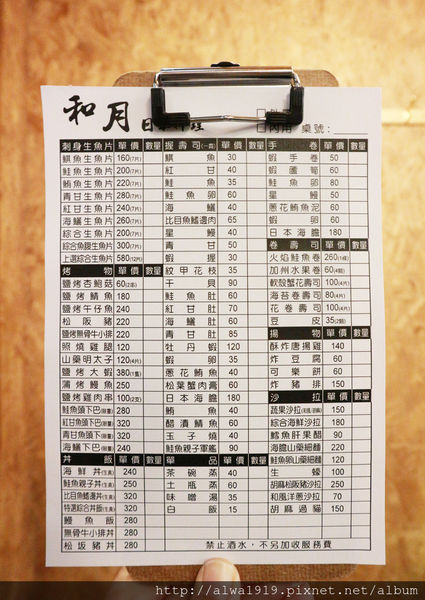 和月日本料理
內用 桌號:
刺身生魚片 單價 數量
鯕魚生魚片 160(7片)
鮭魚生魚片 200(7片)
鮪魚生魚片 220(7片)
青甘生魚片 280(7片)
紅甘生魚片 240(7片)
海鱺生魚片 260(7片)
綜合生魚片 200(7片)
綜合魚腹生魚片 300(7片)
上選綜合生魚片 580(12片)
烤物 單價 數量
鹽烤杏鮑菇 60(2串)
鹽烤鯖魚 180
鹽烤午仔魚 240
松阪豬 220
鹽烤無骨牛小排 220
照燒雞腿 120
山藥明太子 120(4片)
鹽烤大蝦 380(1隻)
蒲烤鰻魚 250
鹽烤雞肉串 100(2支)
鮭魚頭下巴(限量) 280
紅甘魚頭下巴(限量) 320
青甘魚頭下巴(限量) 320
海鱺下巴(限量) 240
丼飯 單價 數量
海鮮丼(生食) 240
鮭魚親子丼(生食) 250
比目魚鰭邊丼(生食) 320
特選綜合丼飯(生食) 320
鰻魚飯 280
無骨牛小排丼 280
松坂豬丼 280
握壽司(一貫) 單價 數量
鯕魚 30
紅甘 40
鮭魚 35
鮭魚卵 60
海鱺 40
比目魚鰭邊肉 65
星鰻 40
青甘 50
蝦握 30
紋甲花枝 35
干貝 90
鮭魚肚 60
紅甘肚 70
海鱺肚 60
青甘肚 90
牡丹蝦 120
蝦卵 35
蔥花鮪魚 40
松葉蟹肉膏 60
日本海膽 180
鮪魚 40
醋漬鯖魚 60
玉子燒 40
鮭魚親子軍艦 90
單品 單價 數量
茶碗蒸 40
土瓶蒸 60
味噌湯 35
白飯 15
手卷 單價 數量
蝦手卷 50
蝦蘆筍 60
鮭魚卵 80
星鰻 50
蔥花鮪魚泥 60
蝦卵 60
日本海膽 180
卷壽司 單價 數量
火焰鮭魚卷 260(1條)
加州水果卷 60(4顆)
軟殼蟹花壽司 100(4片)
海苔卷壽司 80(4片)
花卷壽司 100(4片)
豆皮 35(2顆)
揚物 單價 數量
酥炸唐揚雞 140
炸豆腐 60
可樂餅 60
炸豬排 150
沙拉 單價 數量
蔬果沙拉(和風/胡麻) 150
綜合海鮮沙拉 180
鱈魚肝果醋 90
海膽山藥細麵 120
鮭魚卵山藥細麵 120
生蠔 100
胡麻松阪豬沙拉 250
和風洋蔥沙拉 70
胡麻過貓 150
禁止酒水,不另加收服務費
http://alwa1919.pixnet.net/album